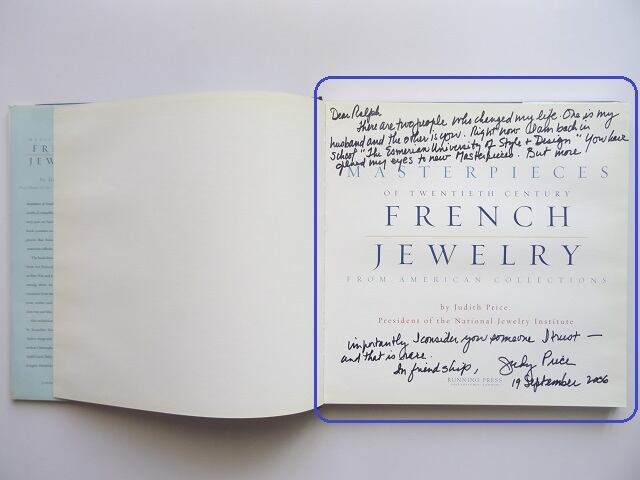 FR
JEWE
Dear Ralph
There are two people who changed my life. One is my
husband and the other is you. Right now I am back in
school "The Esmerian University of Style + Design" You have
opened my eyes to new Masterpieces. But more
MASTERPIECES
OF TWENTIETH CENTURY
FRENCH
JEWELRY
FROM AMERICAN COLLECTIONS
by Judith Price,
President of the National Jewelry Institute
importantly I consider you someone I trust —
and that is rare.
In friendship, Judy Price
RUNNING PRESS
19 September 2006